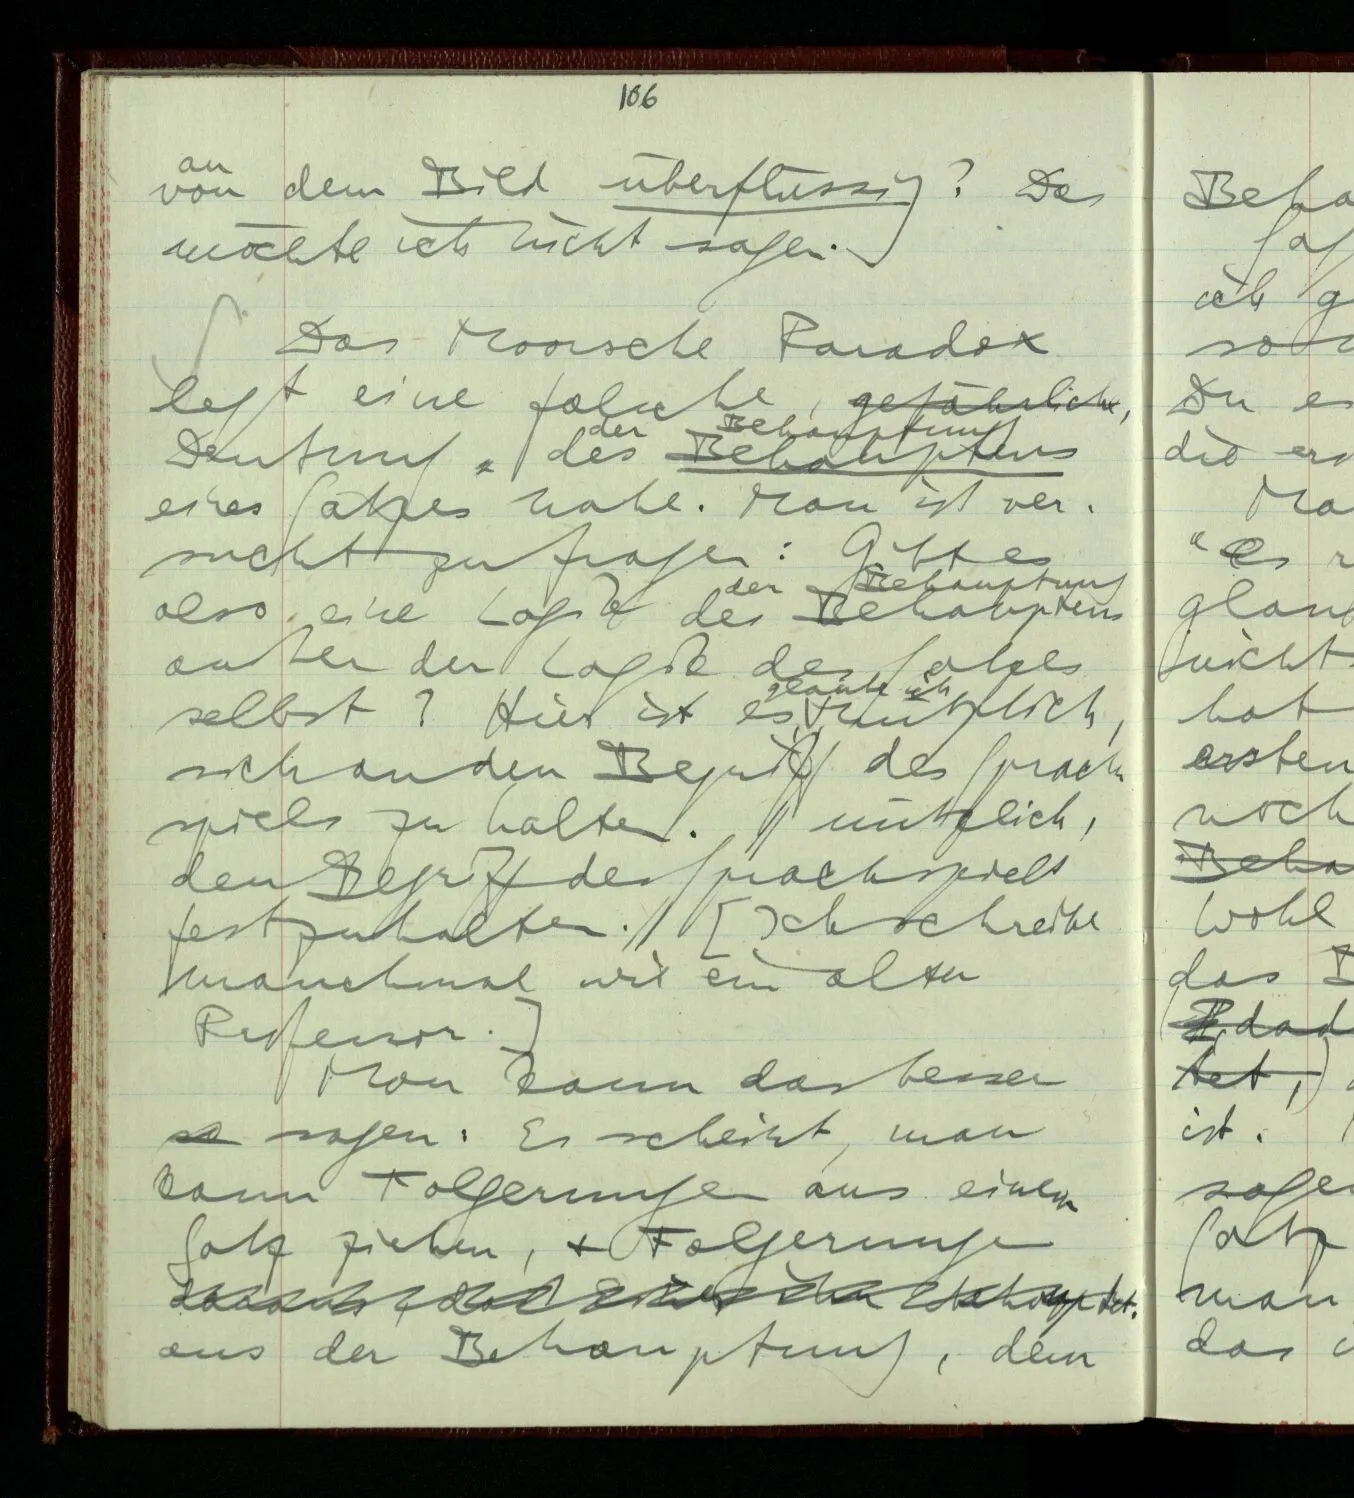 106
an
von dem Bild überflüssig? Das
möchte ich nicht sagen.]
∫ Das Mooresche Paradox
legt eine falsche, gefährliche,
der Behauptung
Deutung, des Behauptens
eines Satzes nahe. Man ist ver-
sucht zu fragen: Gibt es
der Behauptung
also eine Logik des Behauptens
außer der Logik des Satzes
glaube ich
selbst? Hier ist es, nützlich,
sich an den Begriff des Sprach
spiels zu halten. // nützlich,
den Begriff des Sprachspiels
festzuhalten. // [Ich schreibe
manchmal wie ein alter
Professor.]
Man kann das besser
so sagen: Es scheint, man
kann Folgerungen aus einem
Satz ziehen, + Folgerungen
daraus, daß Einer ihn behauptet.
aus der Behauptung, dem
Beha
ich g
Du es
die ers
Ma
"Es r
glaub
nicht
hat
ersten
noch
Beha
Wohl
das B
tet,)
ist.
sagen
Satz
man
das i